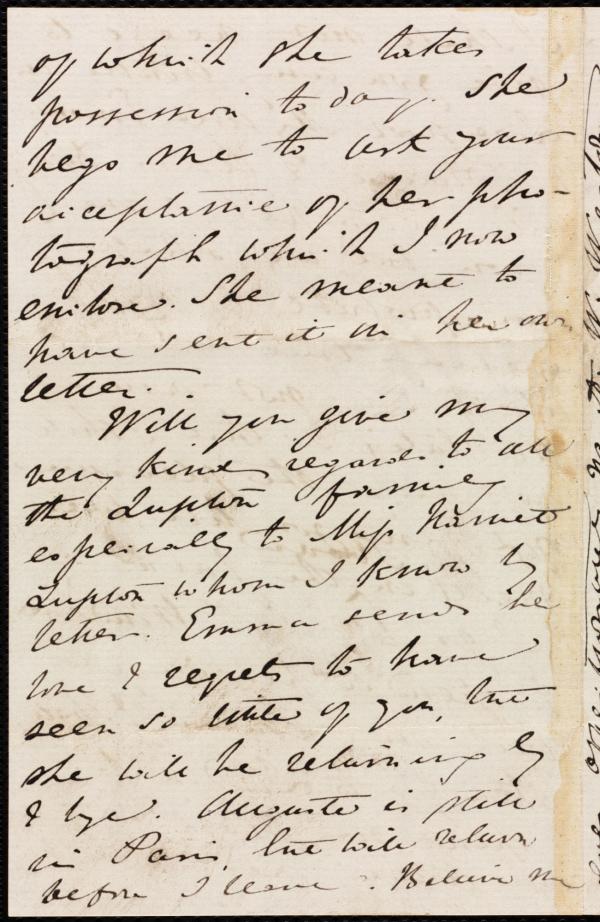 of which she takes
possession to day. She
begs me to ask your
acceptance of her pho-
tograph which I now
enclose. She meant to
have sent it in her own
letter.
Will you give my
very kind regards to all
the Lupton family
especially to Miss Harriet
Lupton whom I know by
letter. Emma sends her
love & regrets to have
seen so little of you, but
she will be returning by
& bye. Auguste is still
in Paris, but will return
before I leave. Believe me